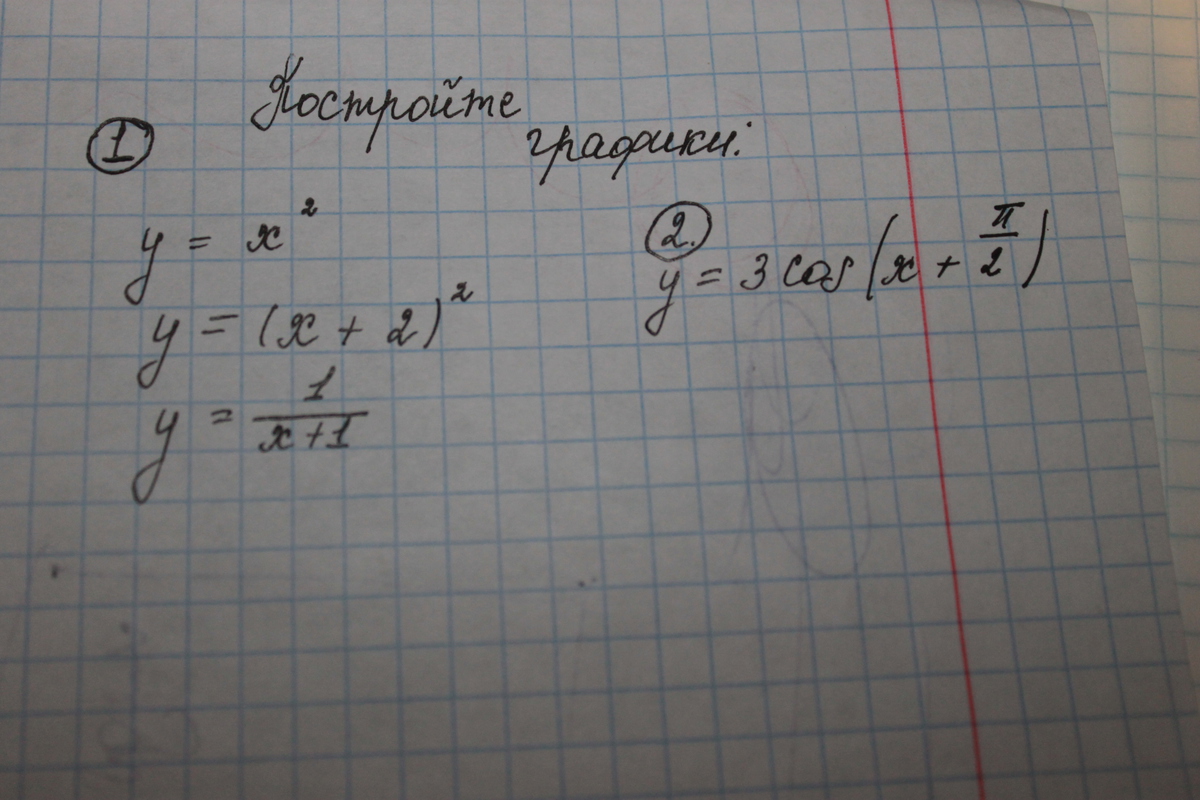 Постройте
графики:
①
y = x²
y = (x + 2)²
y = 1/(x+1)
②.
y = 3 cos (x + π/2)